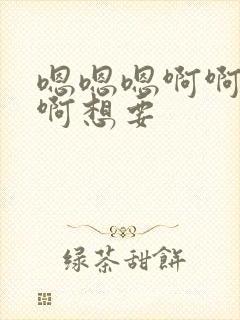 嗯嗯嗯啊啊
啊想要
绿茶甜餅